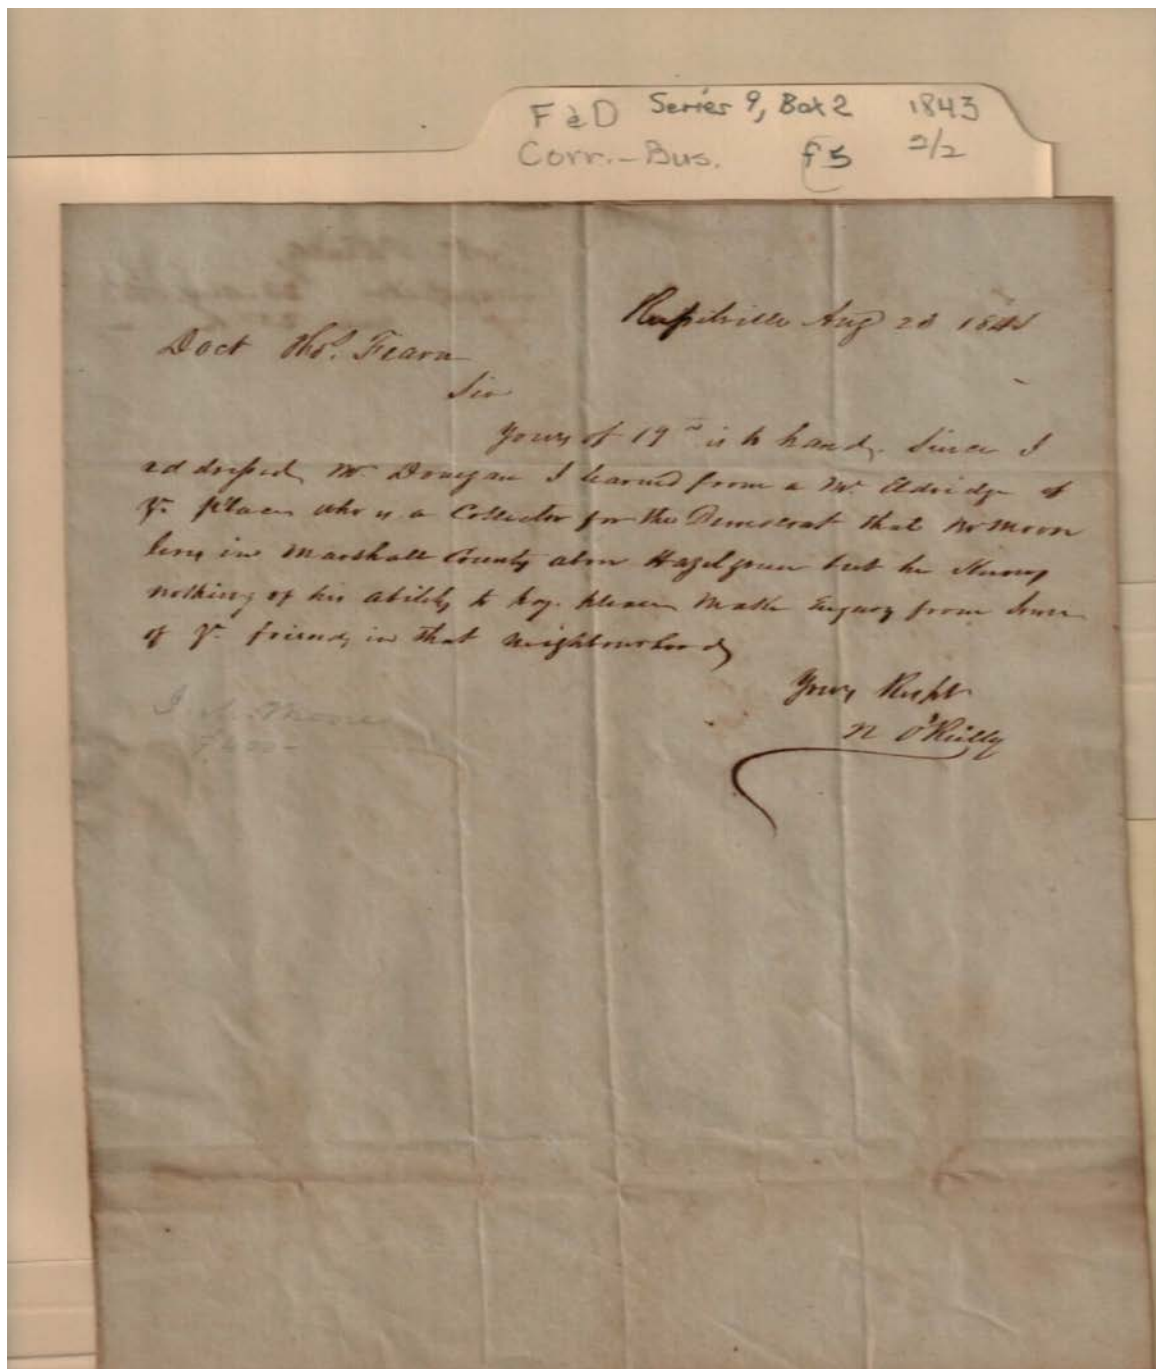 F & D Series 9, Box 2 1843
Corr.-Bus. f5 2/2
Russelville Aug 23
Doct Thos. Fearn
Sir
Yours of 19th is to hand. Since I
addressed Mr Donegan I learned from a Mr Eldridge of
Yr place who is a Collector for the Democrat that Mr Moon
living in Marshall County above Hazelgreen but he knows
nothing of his ability to pay. please Make Enquiry from some
of Yr friends in that neighbourhood
Yours Respt
N O'Reilly